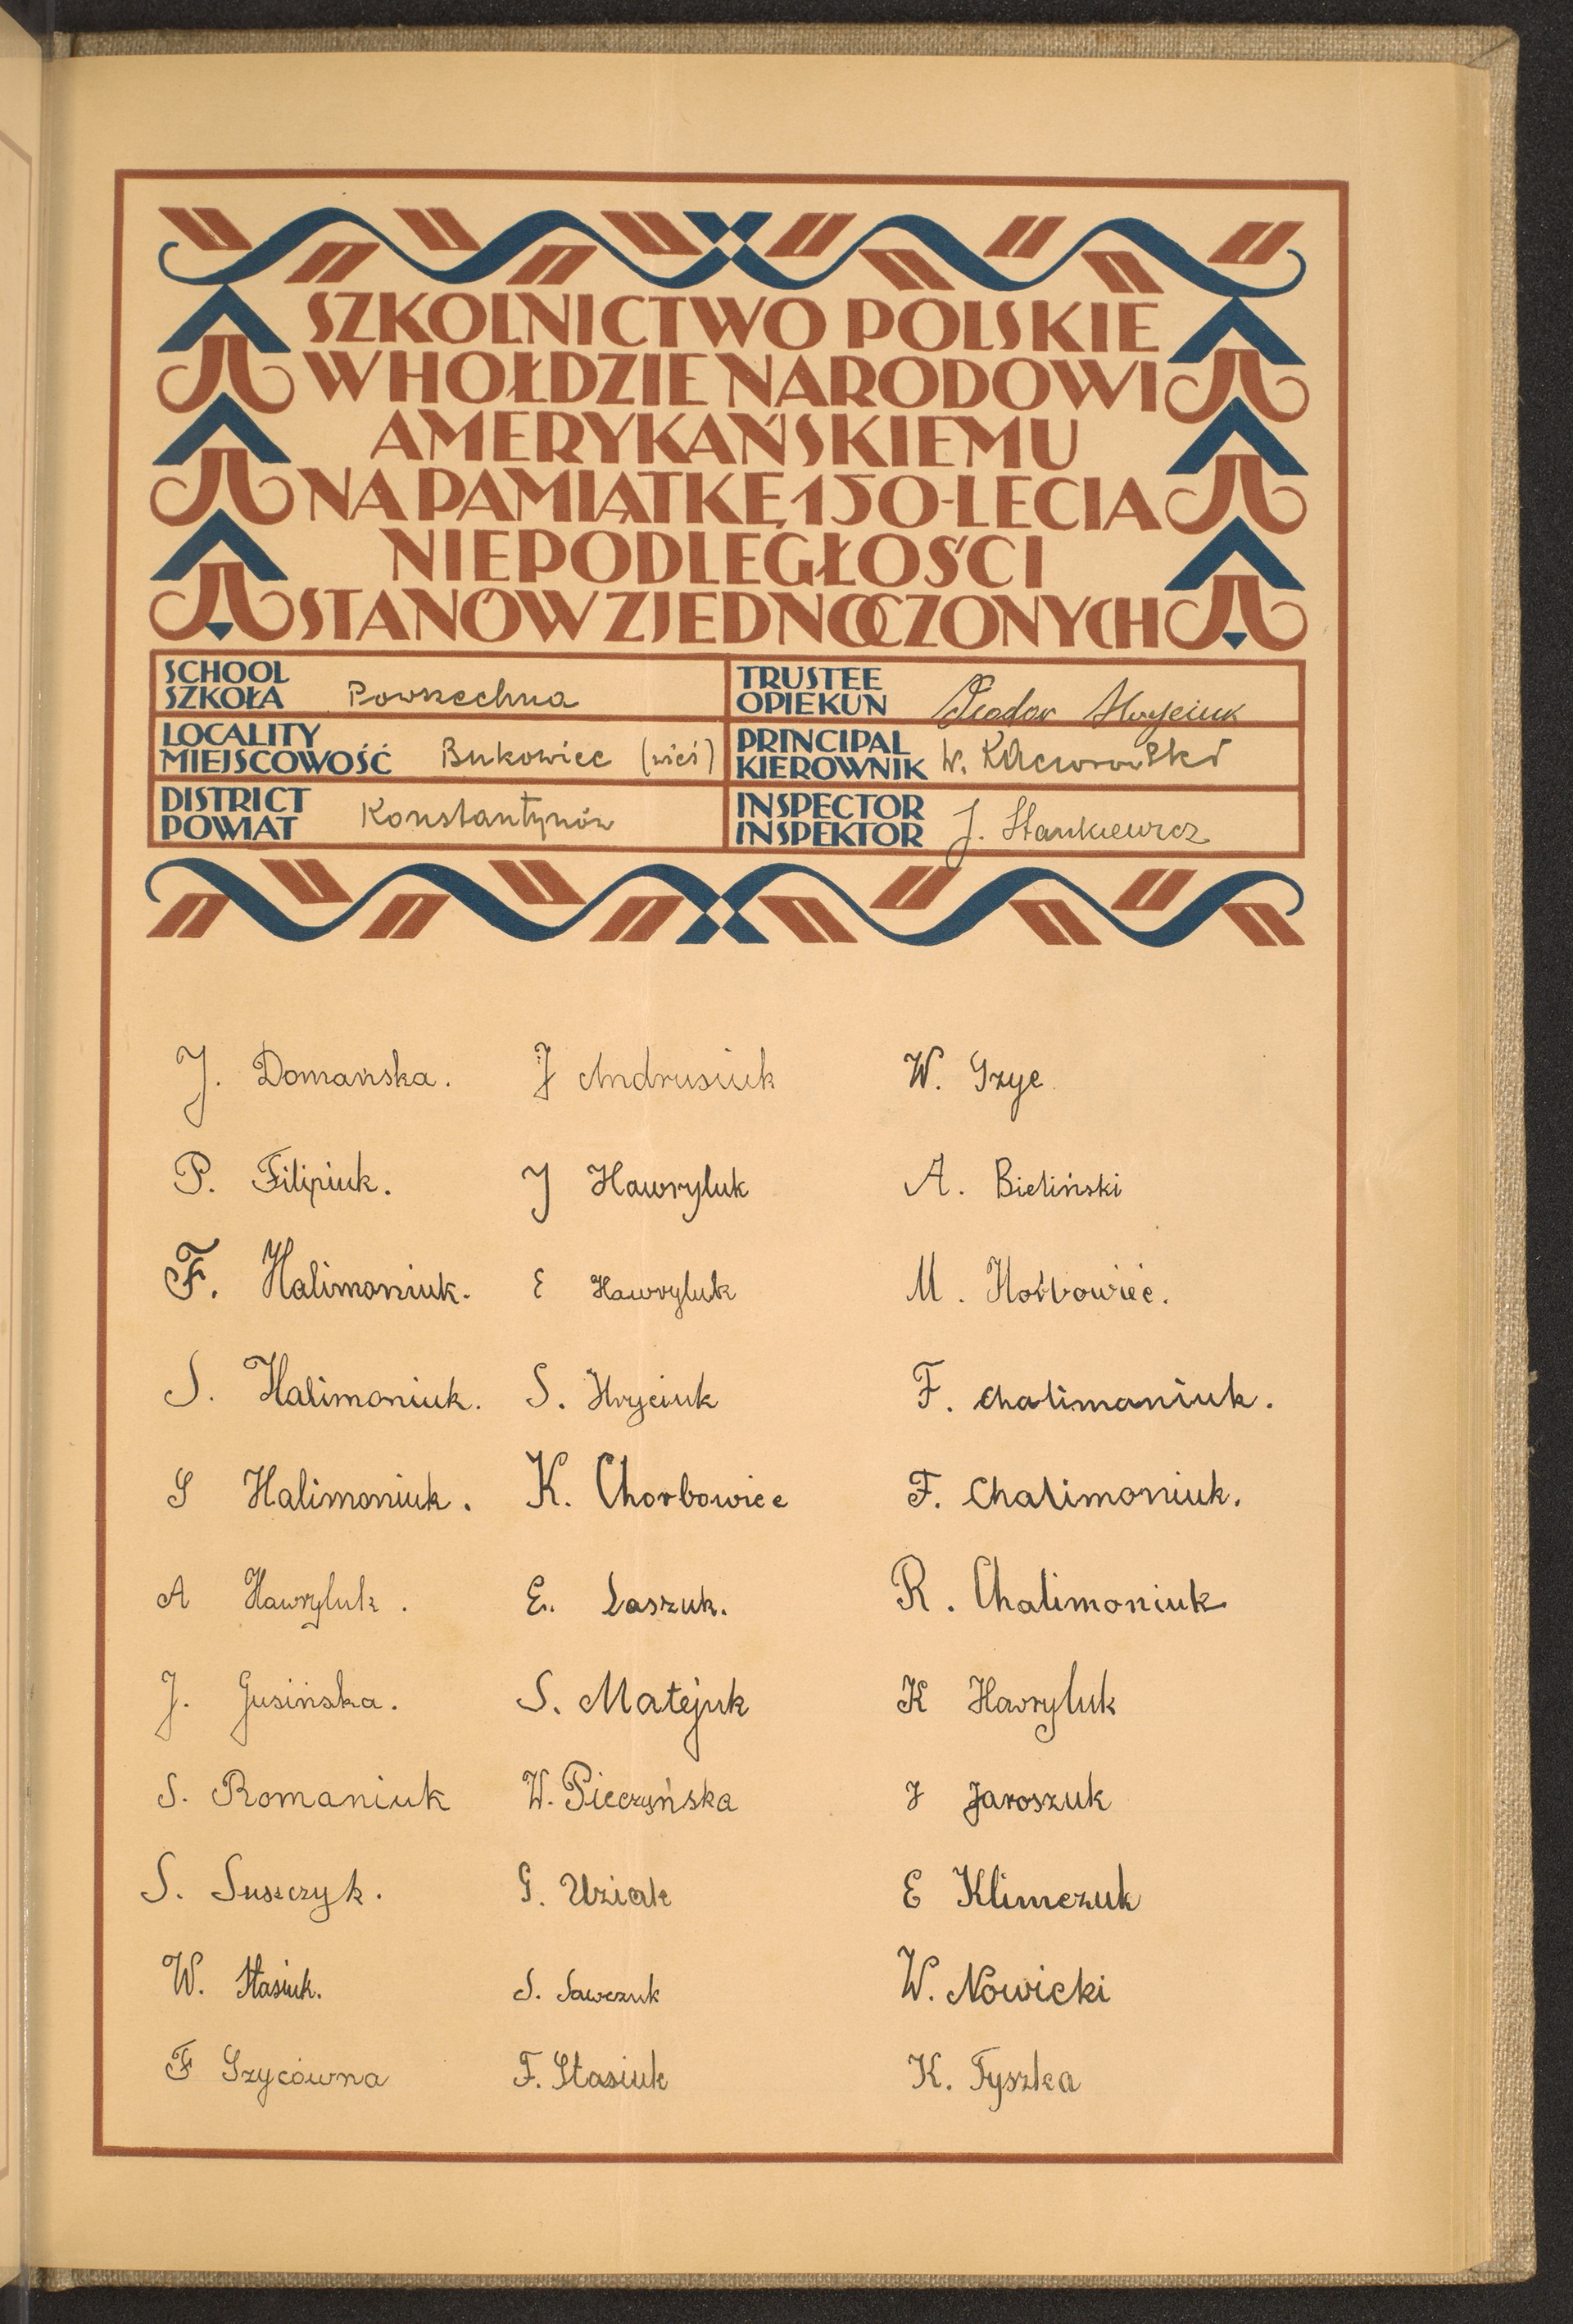 SZKOLNICTWO POLSKIE
W HOŁDZIE NARODOWI
AMERYKAŃSKIEMU
NA PAMIĄTKĘ 150-LECIA
NIEPODLEGŁOŚCI
STANÓW ZJEDNOCZONYCH
SCHOOL
SZKOŁA Powszechna
TRUSTEE
OPIEKUN Teodor Hryciuk
LOCALITY
MIEJSCOWOŚĆ Bukowiec (wieś)
PRINCIPAL
KIEROWNIK W.
DISTRICT
POWIAT Konstantynów
INSPECTOR
INSPEKTOR J. Stankiewicz
J. Domańska. J Andrusiuk W. Gzyc
P. Filipiuk. J Hawryluk A. Bieliński
F. Halimoniuk. E Hawryluk M. Horbowiec.
S. Halimoniuk. S. Hryciuk F. Chalimaniuk.
S Halimoniuk. K. Chorbowiec F. Chalimoniuk.
A Hawryluk. E. Laszuk. R. Chalimoniuk
J. Gusińska. S. Matejuk K Hawryluk
S. Romaniuk W. Pieczyńska J Jaroszuk
S. Suszczyk. G. Uziak E Klimczuk
W. Stasiuk. S. Sawczuk W. Nowicki
F Gzycówna F. Stasiuk K. Tyszka